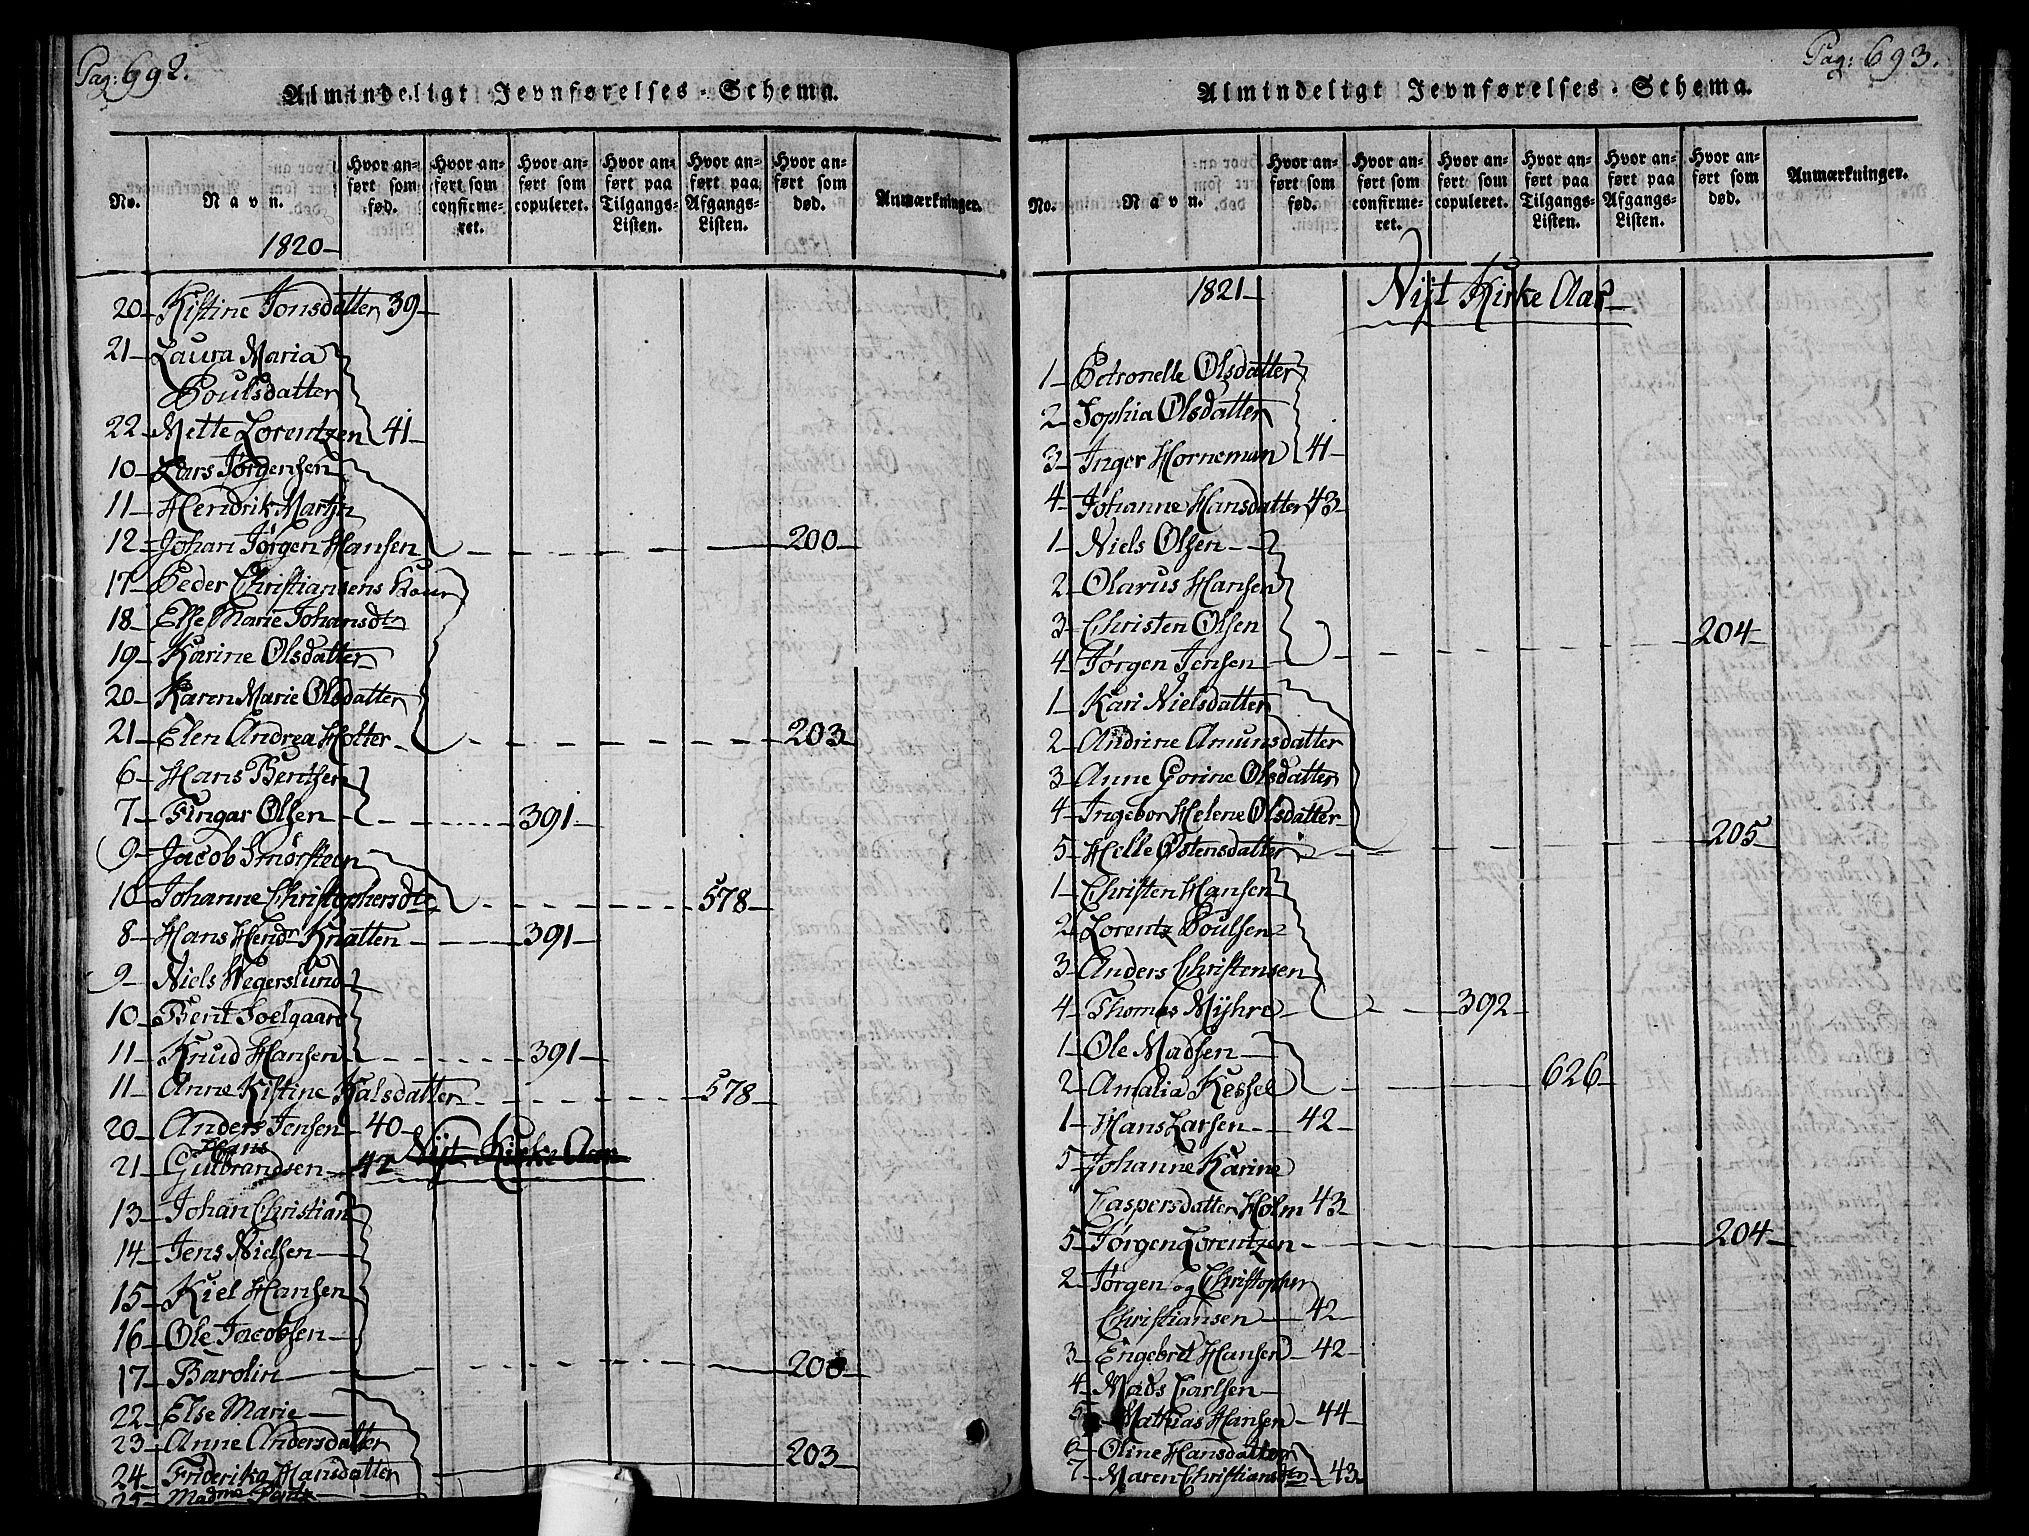 Pag: 692.
Almindeligt Jevnførelses-Schema.
No.
Navn.
Hvor anført som fød.
Hvor anført som confirmeret.
Hvor anført som copuleret.
Hvor anført paa Tilgangs-Listen.
Hvor anført paa Afgangs-Listen.
Hvor anført som død.
Anmærkninger.
1820-
20- Kistine Jonsdatter 39-
21- Laura Maria
Poulsdatter
22- Mette Lorentzen 41-
10- Lars Jørgensen
11- Hendrik Martin
12- Johan Jørgen Hansen 200-
17- Peder Christiansens Kone
18- Else Marie Johansdtr
19- Karine Olsdatter
20- Karen Marie Olsdatter
21- Elen Andrea Holter 203
6- Hans Bentsen
7- Fingar Olsen 391-
9- Jacob Smørsteen
10- Johanne Christophersdtr 578-
8- Hans Hendr Knatten 391-
9- Niels Hegerslund
10- Berit Soelgaard
11- Knud Hansen 391-
11- Anne Kistine Kalsdatter 578-
20- Anders Jensen- 40-
Hans
21- Gulbrandsen- 42 Nyt Kirke Aar
13- Johan Christian
14- Jens Nielsen-
15- Kiel Hansen
16- Ole Jacobsen-
17- Barolin- 200-
22- Else Marie-
23- Anne Andersdatter
24- Friderika Hansdatter 203-
25- Madme
Pag: 693.
Almindeligt Jevnførelses-Schema.
No.
Navn.
Hvor anført som fød.
Hvor anført som confirmeret.
Hvor anført som copuleret.
Hvor anført paa Tilgangs-Listen.
Hvor anført paa Afgangs-Listen.
Hvor anført som død.
Anmærkninger.
1821- Nyt Kirke Aar-
1- Petronelle Olsdatter
2- Sophia Olsdatter
3- Inger Horneman 41-
4- Johanne Hansdatter 43-
1- Niels Olsen-
2- Olavus Hansen
3- Christen Olsen
4- Jørgen Jensen- 204-
1- Kari Nielsdatter
2- Andrine Amunsdatter
3- Anne Gorine Olsdatter
4- Ingebor Helene Olsdatter
5- Helle Østensdatter 205-
1- Christen Hansen
2- Lorentz Poulsen
3- Anders Christensen
4- Thomas Myhre- 392-
1- Ole Madsen-
2- Amalia Kessel 626-
1- Hans Larsen- 42-
5- Johanne Karine
Caspersdatter Holm 43-
5- Jørgen Lorentzen- 204-
2- Jørgen og Christopher
Christiansen- 42-
3- Engebret Hansen- 42-
4- Mads Carlsen-
5- Mathias Hansen- 44-
6- Oline Hansdatter
7- Maren Christiansdtr- 43-